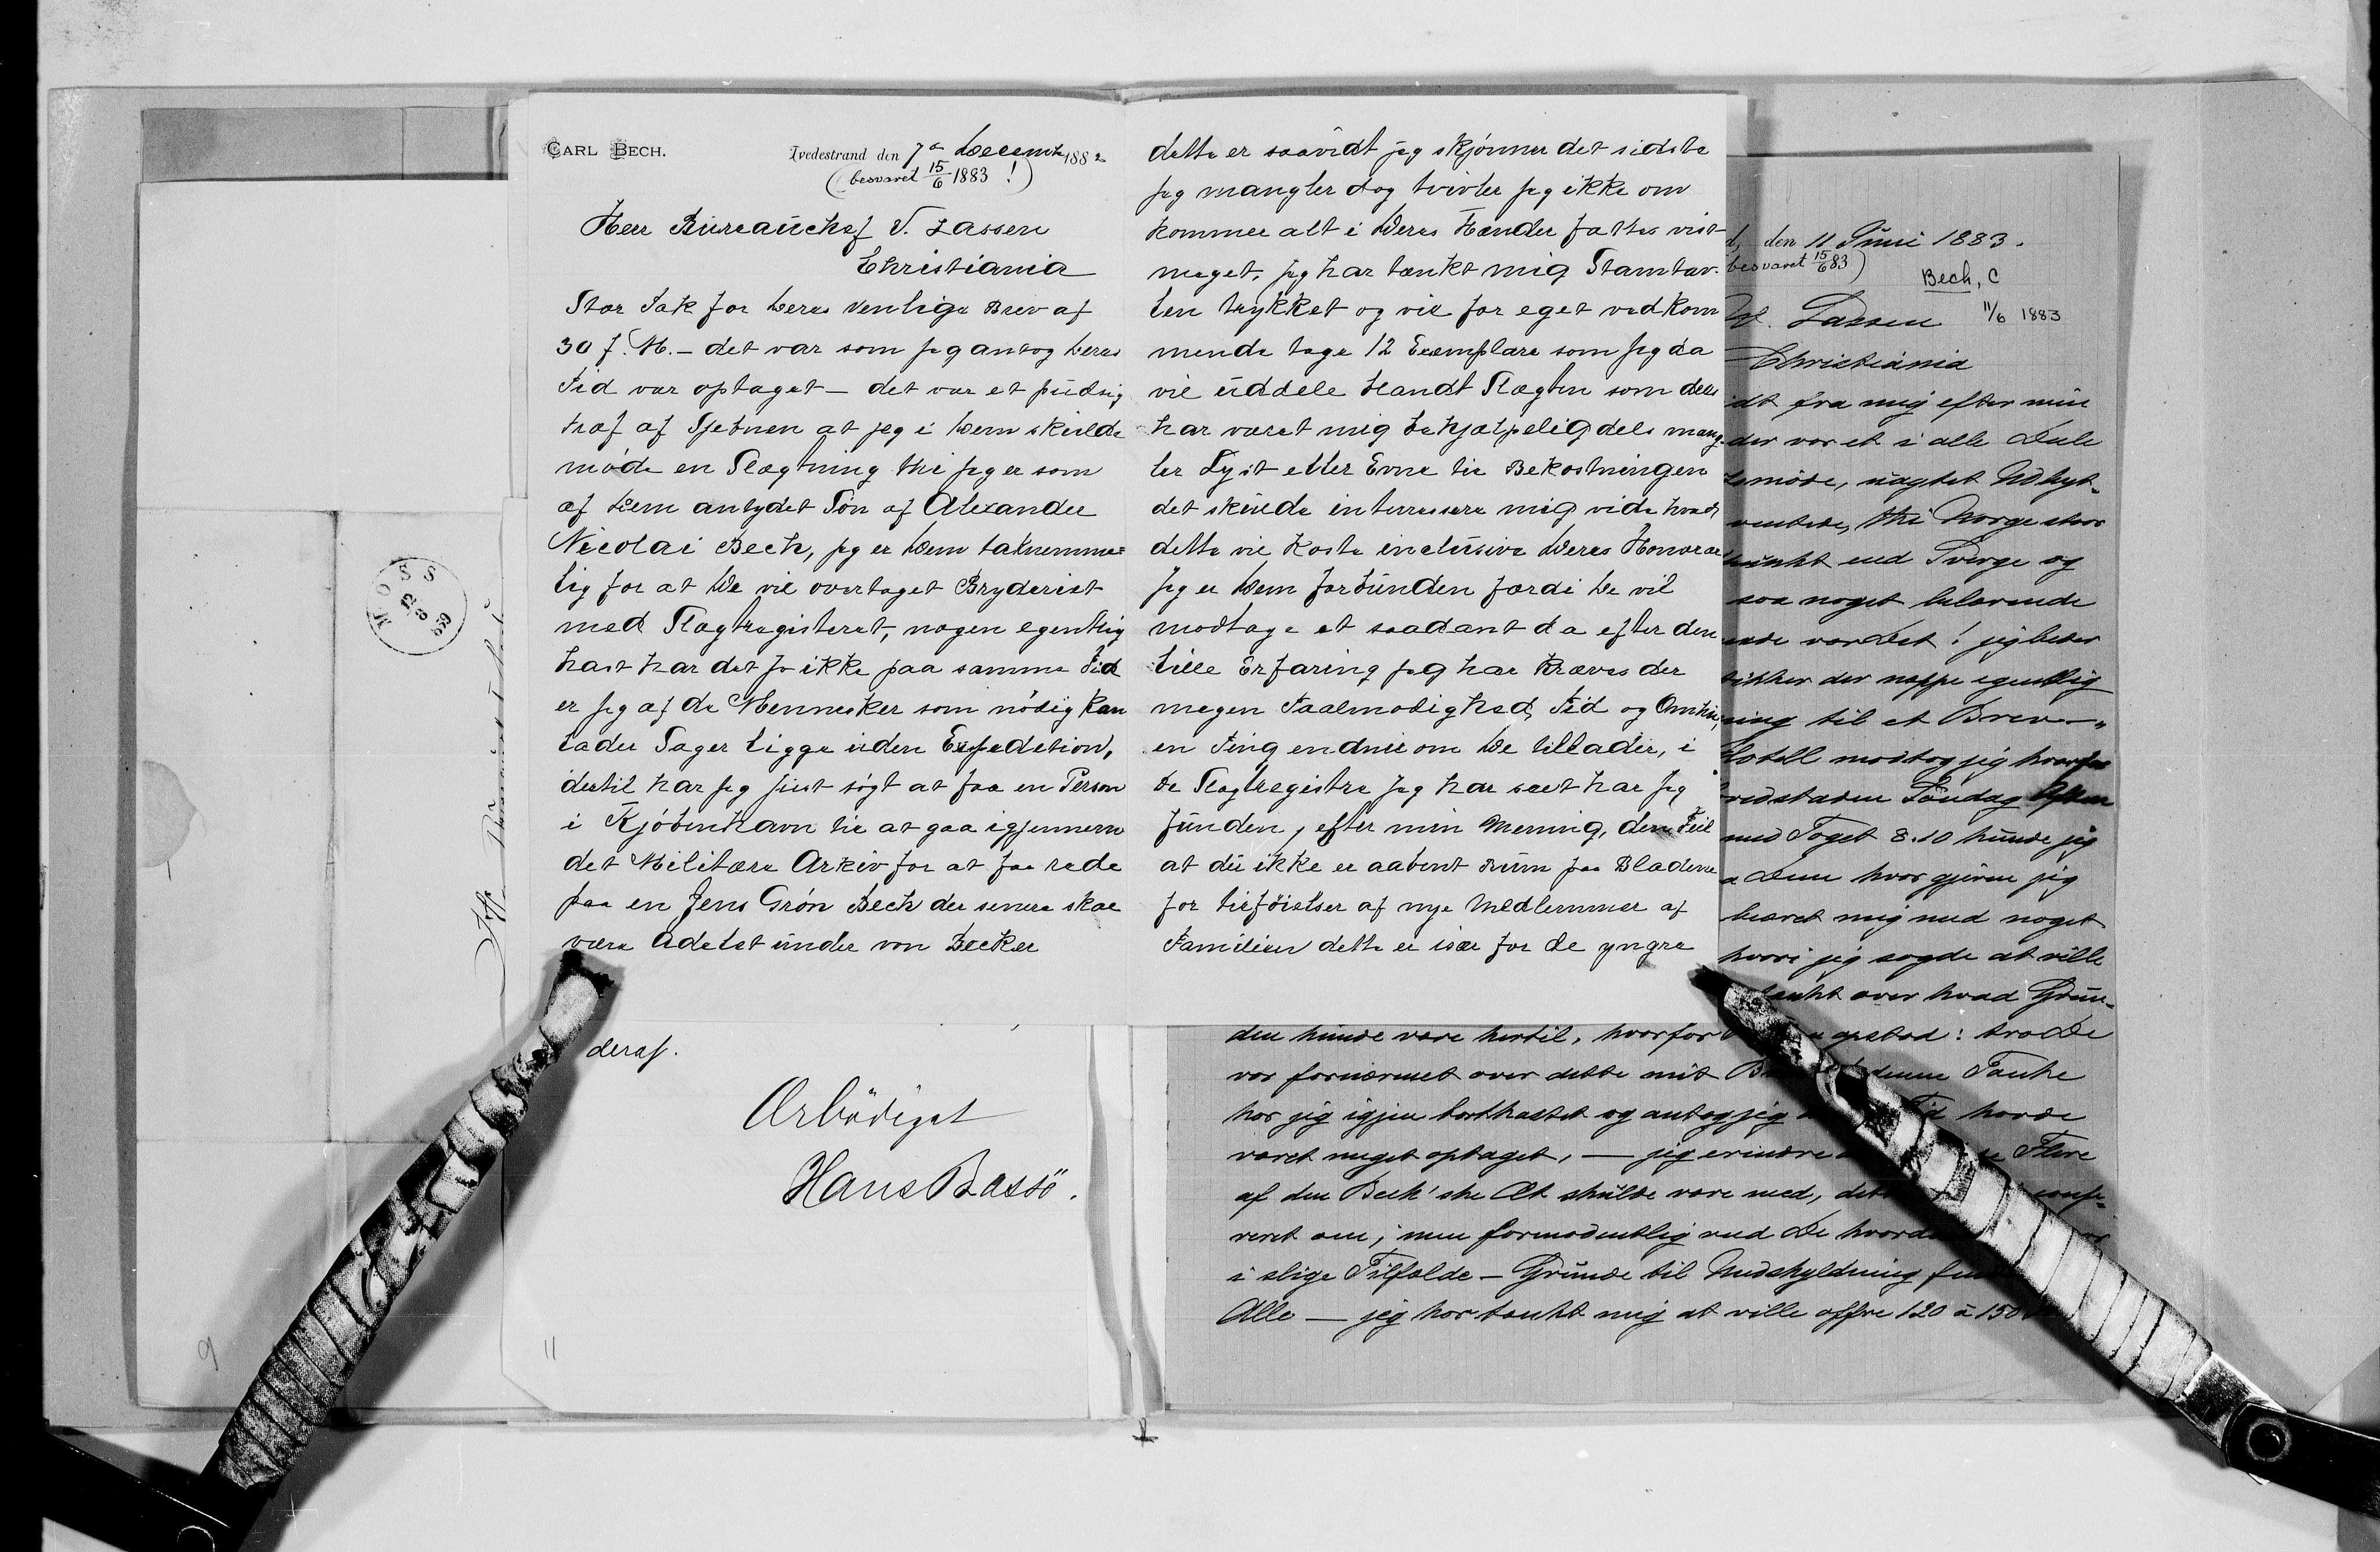 CARL BECH.
Tvedestrand den 7de Decemb 1882
(besvaret 15/6 1883 !)
Herr Bureauchef V. Lassen
Christiania
Stor Tak for Deres venlige Brev af
30 f. M. – det var som jeg antog Deres
Tid var optaget – det var et pudsig
traf af Skjebnen at jeg i Dem skulde
møde en Slægtning thi jeg er som
af Dem antydet Søn af Alexander
Nicolai Bech, jeg er Dem taknemme=
lig for at De vil overtaget Bryderiet
med Slagtregisteret, nogen egentlig
hast har det jo ikke paa samme Tid
er jeg af de Mennesker som nødig kan
lader Sager ligge uden Expedition,
dertil har jeg først søgt at faa en Person
i Kjøbenhavn til at gaa igjennem
det Militære Arkiv for at faa rede
paa en Jens Grøn Bech der senere skal
være Adelet under von Becker
dette er saavidt jeg skjønner det sidste
jeg mangler dog tvivler jeg ikke om
kommer alt i Deres Hænder fattes vist
meget, jeg har tænkt mig Stamtav-
len trykket og vil for eget vedkom
mende tage 12 Exemplare som jeg da
vil uddele blandt Slægten som dels
har været mig behjælpelig dels mang-
ler Lyst eller Evne til Bekostningen
det skulde interressere mig vide hvad
dette vil koste inclusive Deres Honorar
jeg er Dem forbunden fordi De vil
modtage et saadant da efter den
lille Erfaring jeg har kræves der
megen Taalmodighed, Tid og Omhu,
en Ting endnu om De tillader, i
de Slagtregistre jeg har seet har jeg
funden, efter min Mening, den Feil
at du ikke er aabent Rum paa Bladene
for tilføielser af nye Medlemmer af
Familien dette er især for de yngre
deraf.
Ærbødigst
Hans Bassö.
11
9
MOSS
d, den 11 Juni 1883.
besvaret 15/6 83)
Bech, C
11/6 1883
Lassen
Christiania
idt fra mig efter min
der var et i alle Dele
møde, uagtet Udbyt-
ventede, thi Norge staar
smukt end Sverge og
saa noget belærende
jeg beder
der neppe egentlig
ning til et Brev — "
Hotell modtog jeg hvorfor
Hovedstaden Söndag Aften
med Toget 8.10 kunde jeg
Dem hvor gjerne jeg
beæret mig med noget
hvori jeg sagde at ville
tænkt over hvad Grun-
den kunde være hertil, hvorfor opstod: tro De
var fornærmet over dette mit denne Tanke
har jeg igjen bortkastet og antog jeg Tid havde
været meget optaget, — jeg erindre Flere
af den Bech'ske Æt skulde være med, det
reret om; men formodentlig ved De hvord
i slige Tilfælde – Grunde til Undskyldning
Alle — jeg har tænkt mig at ville offre 120 à 150